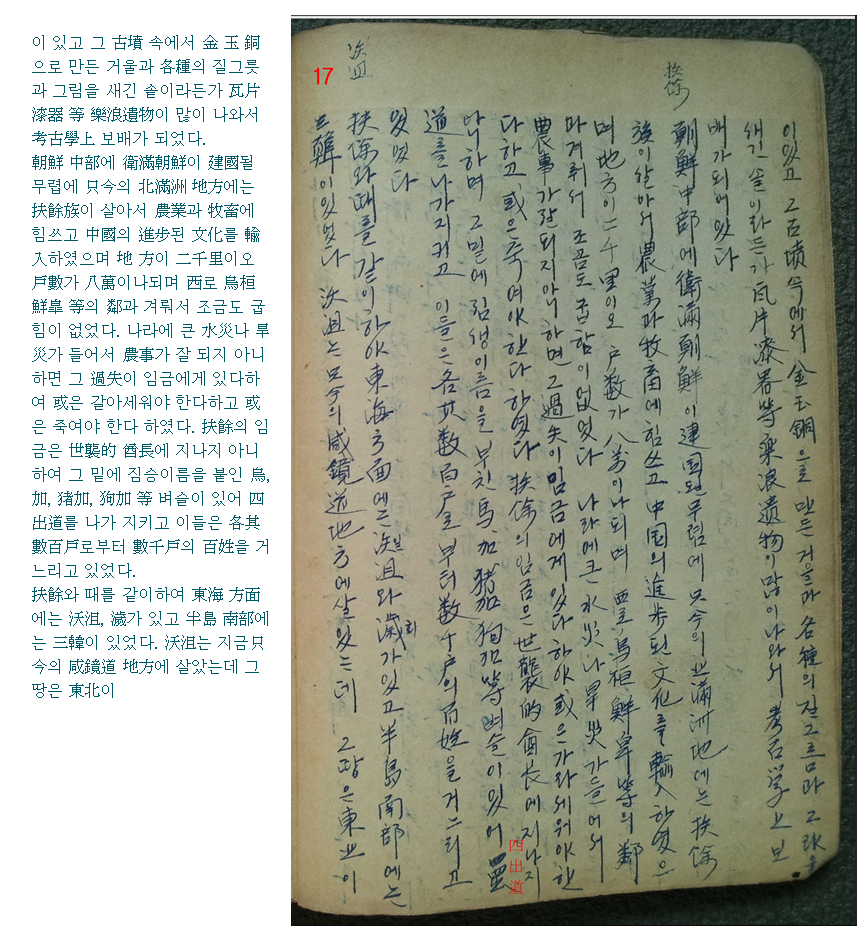 이 있고 그 古墳 속에서 金 玉 銅
으로 만든 거울과 各種의 질그릇
과 그림을 새긴 솥이라든가 瓦片
漆器 等 樂浪遺物이 많이 나와서
考古學上 보배가 되었다.
朝鮮 中部에 衛滿朝鮮이 建國될
무렵에 只今의 北滿洲 地方에는
扶餘族이 살아서 農業과 牧畜에
힘쓰고 中國의 進步된 文化를 輸
入하였으며 地 方이 二千里이오
戶數가 八萬이나되며 西로 烏桓
鮮卑 等의 鄰과 겨뤄서 조금도 굽
힘이 없었다. 나라에 큰 水災나 旱
災가 들어서 農事가 잘 되지 아니
하면 그 過失이 임금에게 있다하
여 或은 갈아세워야 한다하고 或
은 죽여야 한다 하였다. 扶餘의 임
금은 世襲的 酋長에 지나지 아니
하여 그 밑에 짐승이름을 붙인 烏,
加, 猪加, 狗加 等 벼슬이 있어 四
出道를 나가 지키고 이들은 各其
數百戶로부터 數千戶의 百姓을 거
느리고 있었다.
扶餘와 때를 같이하여 東海 方面
에는 沃沮, 濊가 있고 半島 南部에
는 三韓이 있었다. 沃沮는 지금只
今의 咸鏡道 地方에 살았는데 그
땅은 東北이
扶餘
이있고 그古墳속에서 金玉銅으로 만든 거울과 各種의 질그릇과 그림을
새긴 솥이라든가 瓦片漆器等樂浪遺物이많이나와서 考古学上 보
배가되어있다
朝鮮中部에衛滿朝鮮이建国될무렵에 只今의北滿洲地에는 扶餘
族이살아서 農業과牧畜에힘쓰고 中国의進步된文化를輸入하였으
며 地方이二千里이오 户数가 八万이나되며 西로烏桓鮮卑等의鄰
과겨뤄서 조금도굽힘이없었다 나라에큰水災나旱災가들어서
農事가잘되지아니하면 그過失이임금에게있다하야 或은가라세워야한
다하고 或은죽여야한다하였다 扶餘의임금은世襲的酋長에지나지
아니하며 그밑에짐생이름을부친馬加猪加狗加等벼슬이있어 四
四出道
道를나가지키고 이들은各其数百户로부터数千户의百姓을거느리고
있었다
扶餘와때를같이하야東海方面에는沃沮와濊가있고半島南部에는
三韓이있었다 沃沮는只今의咸鏡道地方에살았는데 그땅은東北이
沃沮
17